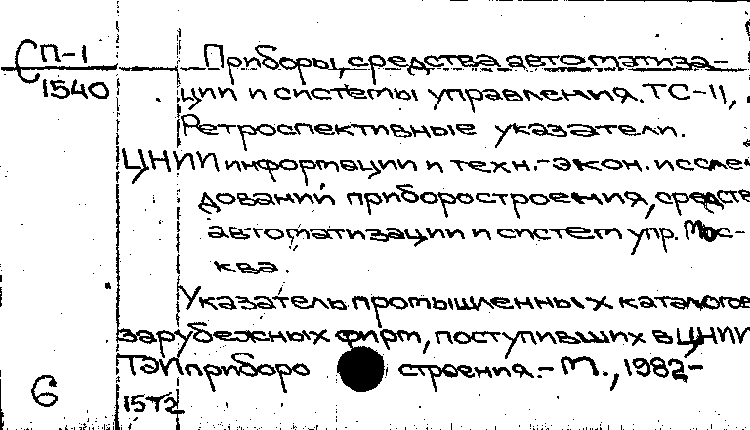 СП-1 Приборы, средства автоматиза-
1540 ции и системы управления. ТС-11,
Ретроспективные указатели.
ЦНИИ информации и техн.-экон. иссле-
дований приборостроения, средств
автоматизации и систем упр. Мос-
ква.
Указатель промышленных каталогов
зарубежных фирм, поступивших в ЦНИИ
ТЭИприборо строения. - М., 1982-
6 1572